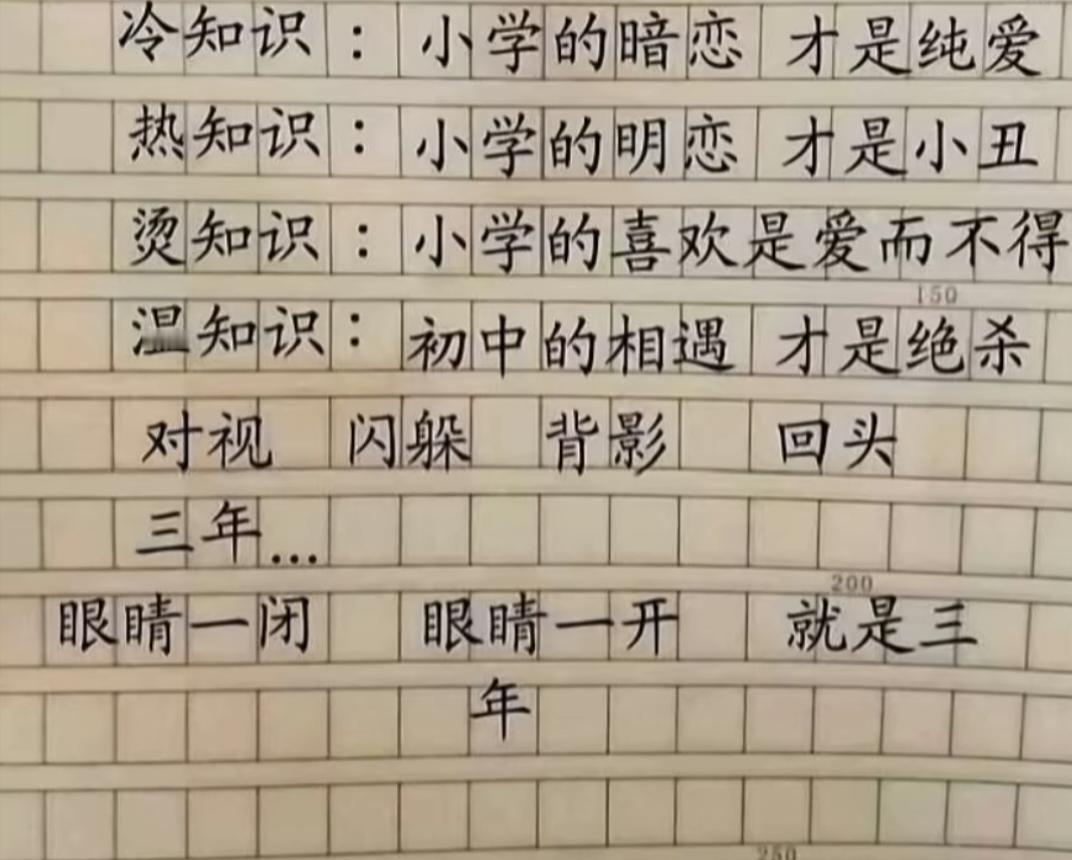 冷知识：小学的暗恋 才是纯爱
热知识：小学的明恋 才是小丑
烫知识：小学的喜欢是爱而不得
150
温知识：初中的相遇 才是绝杀
对视 闪躲 背影 回头
三年...
200
眼睛一闭 眼睛一开 就是三
年
250